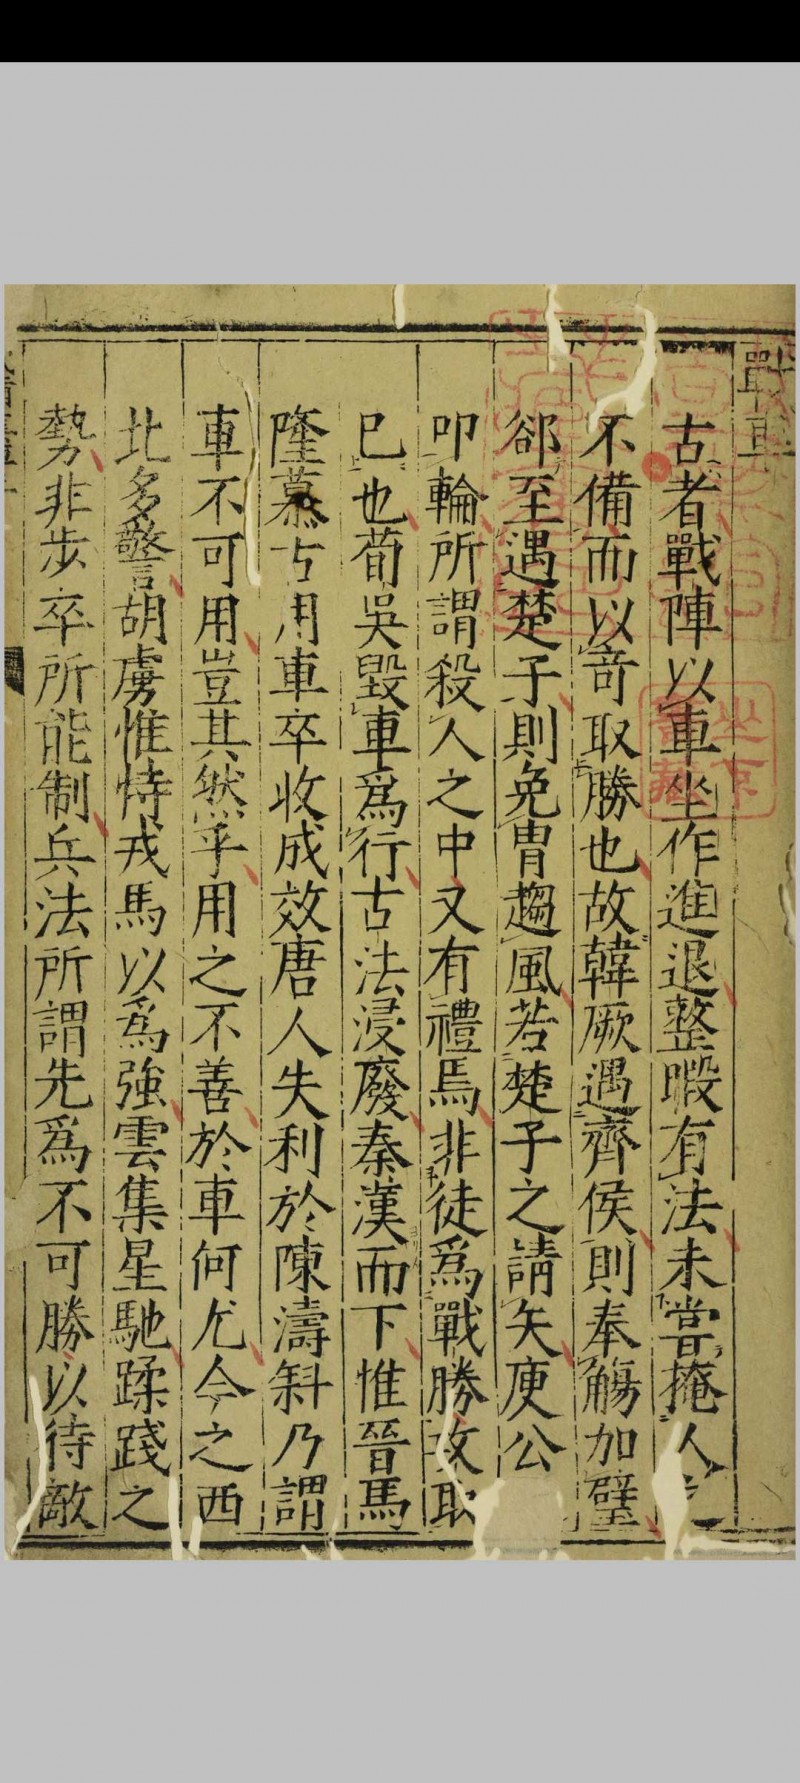 戰車
古者戰陣以車坐作進退整暇有法未嘗掩人之
不備而以竒取勝也故韓厥遇齊侯則奉觴加璧
郤至遇楚子則免胄趨風若楚子之請矢庾公
叩輪所謂殺人之中又有禮焉非徒爲戰勝攻取
已也荀吳毀車爲行古法浸廢秦漢而下惟晉馬
隆慕古用車卒收成效唐人失利於陳濤斜乃謂
車不可用豈其然乎用之不善於車何尤今之西
北多警胡虜惟恃戎馬以爲強雲集星馳蹂踐之
勢非步卒所能制兵法所謂先爲不可勝以待敵